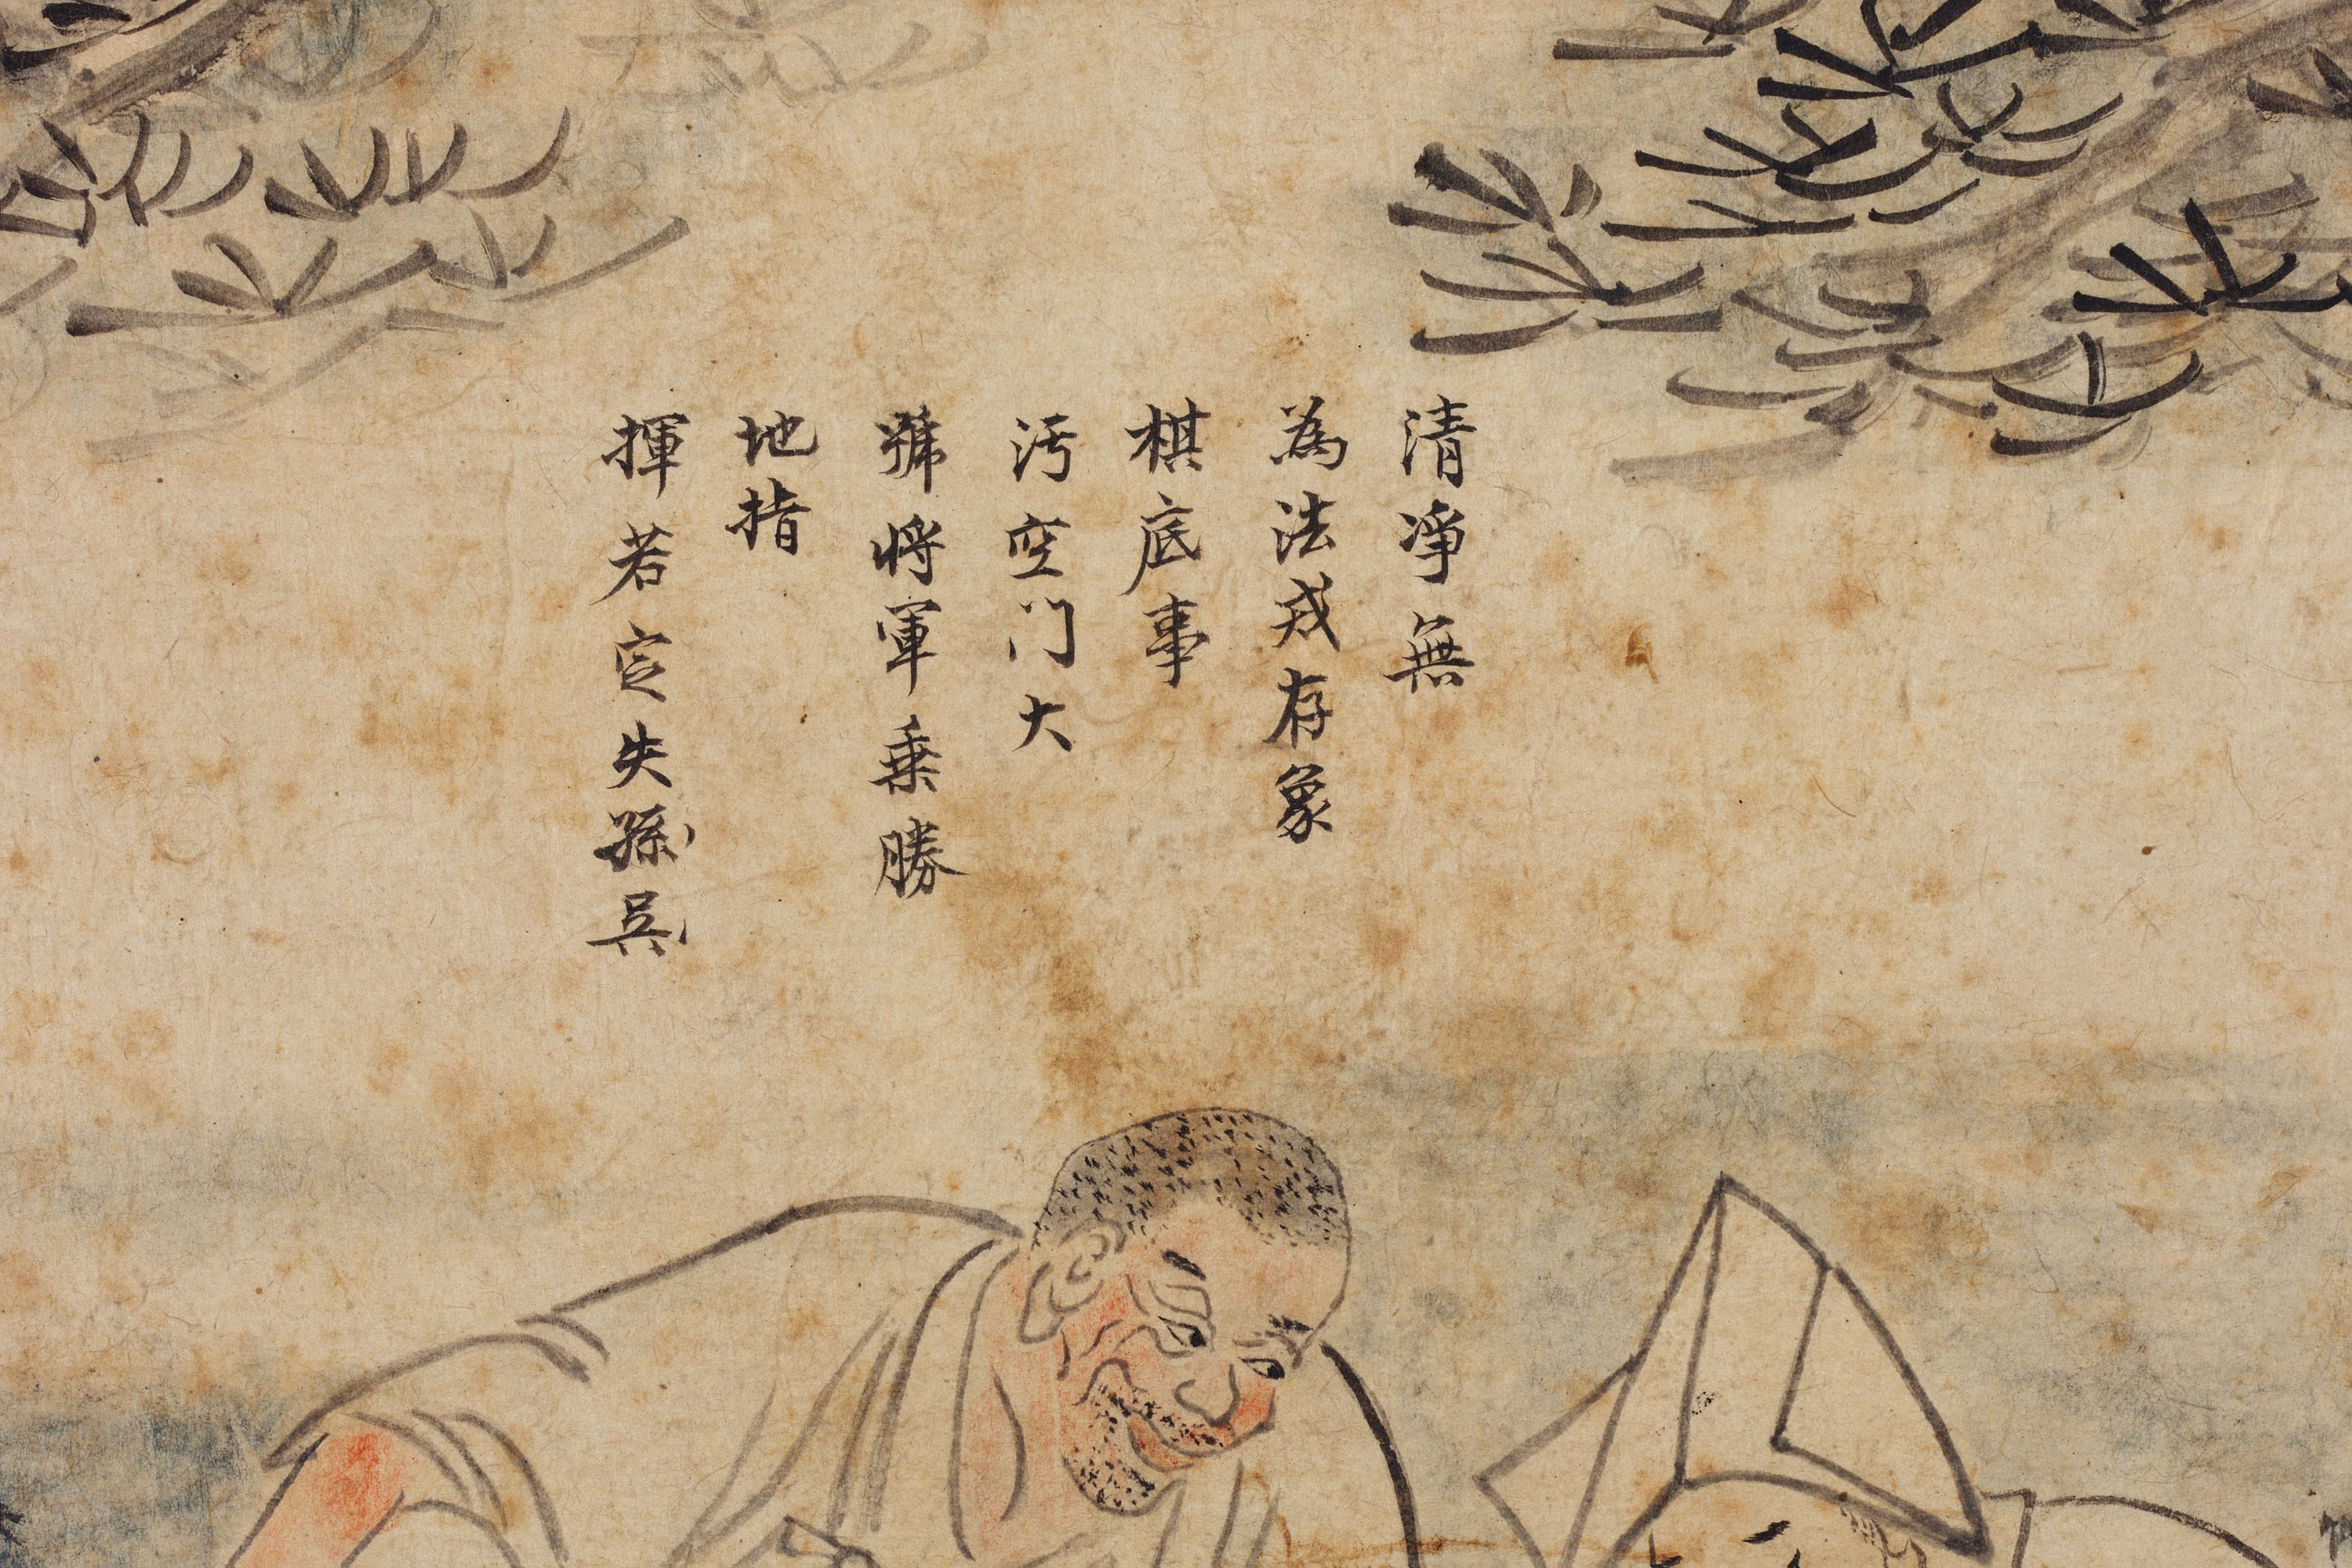 清淨無
為法戎存象
棋底事
汚空门大
號將軍乗勝
地指
揮若定失孫吳